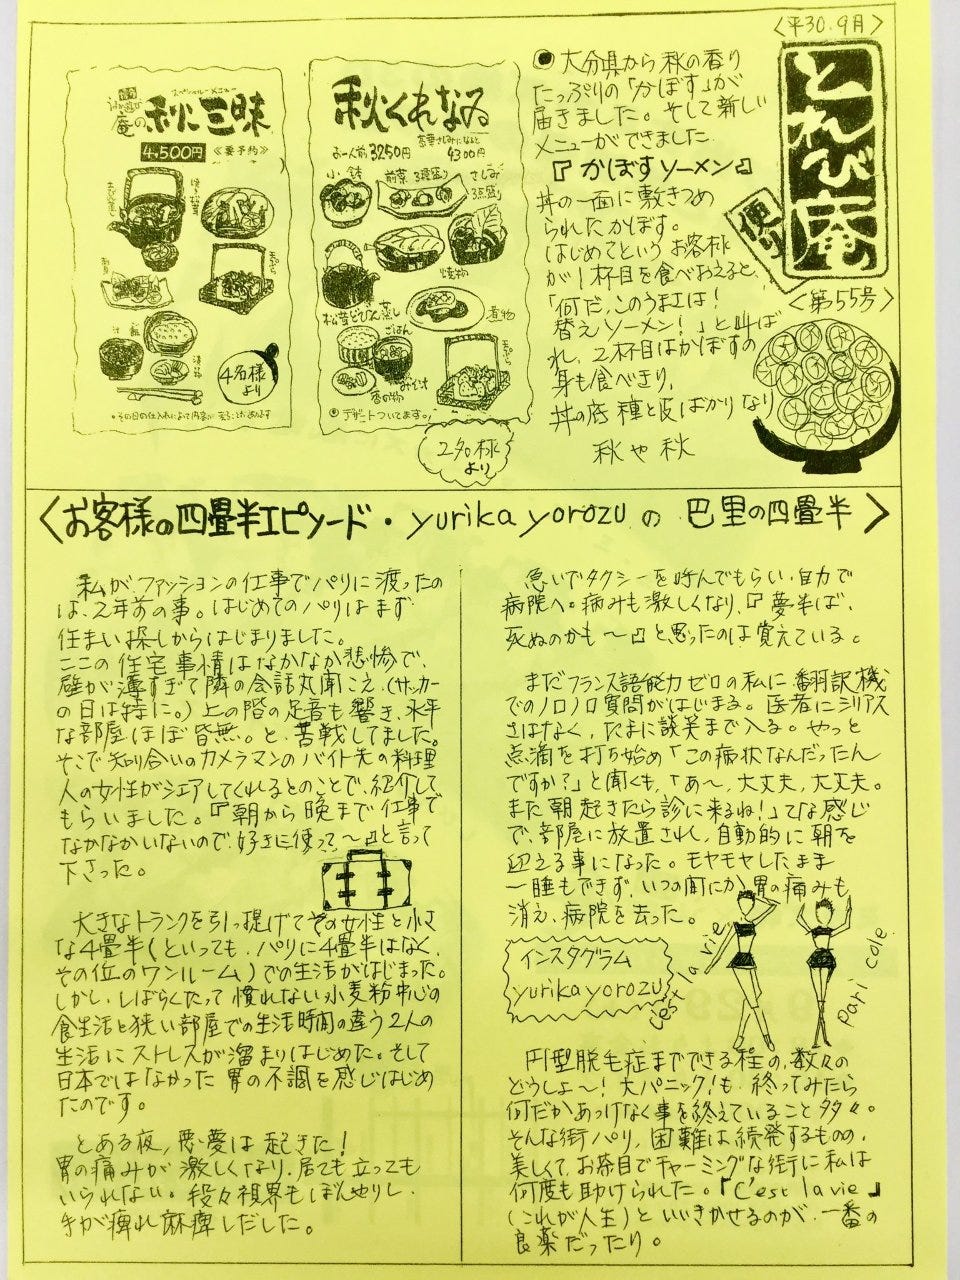 〈平30.9月〉
とれび庵
便り
〈第55号〉
●大分県から秋の香り
たっぷりの「かぼす」が
届きました。そして新しい
メニューができました
『かぼすソーメン』
丼の一面に敷きつめ
られたかぼす。
はじめてというお客様
が1杯目を食べおえると、
「何だ、このうまエは!
替えソーメン!」と叫ば
れ、2杯目はかぼすの
身も食べきり、
丼の底 種と皮ばかりなり
秋や秋
スペシャルメニュー
庵の秋三昧
4,500円 《要予約》
汁
飯
4名様
より
秋くれなゐ
お一人前3250円
豪華さしみになると
4300円
小鉢
前菜3種盛り
さしみ
3点盛
焼物
松茸どびん蒸し
煮物
ごはん
みそ汁
香の物
天ぷら
◎デザートついてます。
2名様
より
〈お客様の四畳半エピソード・yurika yorozuの 巴里の四畳半〉
私がファッションの仕事でパリに渡ったの
は、2年前の事。はじめてのパリはまず
住まい探しからはじまりました。
ここの住宅事情はなかなか悲惨で、
壁が薄すぎて隣の会話丸聞こえ、(サッカー
の日は特に。)上の階の足音も響き、水平
な部屋はほぼ皆無。と、苦戦してました。
そこで知り合いのカメラマンのバイト先の料理
人の女性がシェアしてくれるとのことで、紹介して
もらいました。『朝から晩まで仕事で
なかなかいないので、好きに使って〜』と言って
下さった。
大きなトランクを引っ提げてその女性と小さ
な4畳半(といっても、パリに4畳半はなく、
その位のワンルーム)での生活がはじまった。
しかし、しばらくたって慣れない小麦粉中心の
食生活と狭い部屋での生活時間の違う2人の
生活にストレスが溜まりはじめた。そして
日本ではなかった胃の不調を感じはじめ
たのです。
とある夜、悪夢は起きた!
胃の痛みが激しくなり、居ても立っても
いられない。段々視界もぼんやりし、
手が痺れ麻痺しだした。
急いでタクシーを呼んでもらい、自力で
病院へ。痛みも激しくなり、『夢半ば、
死ぬのかも〜』と思ったのは覚えている。
まだフランス語能力ゼロの私に翻訳機
でのノロノロ質問がはじまる。医者にシリアス
さはなく、たまに談笑まで入る。やっと
点滴を打ち始め「この病状なんだったん
ですか?」と聞くも、「あ〜、大丈夫、大丈夫。
また朝起きたら診に来るね!」てな感じ
で、部屋に放置され、自動的に朝を
迎える事になった。モヤモヤしたまま
一睡もできず、いつの間にか胃の痛みも
消え、病院を去った。
インスタグラム
yurikayorozu
c'est la vie
pari cole
円型脱毛症までできる程の、数々の
どうしよ〜!大パニック!も、終ってみたら
何だかあっけなく事を終えていること多々。
そんな街パリ、困難は続発するものの、
美しくて、お茶目でチャーミングな街に私は
何度も助けられた。『C'est la vie』
(これが人生)と いいきかせるのが、一番の
良薬だったり。